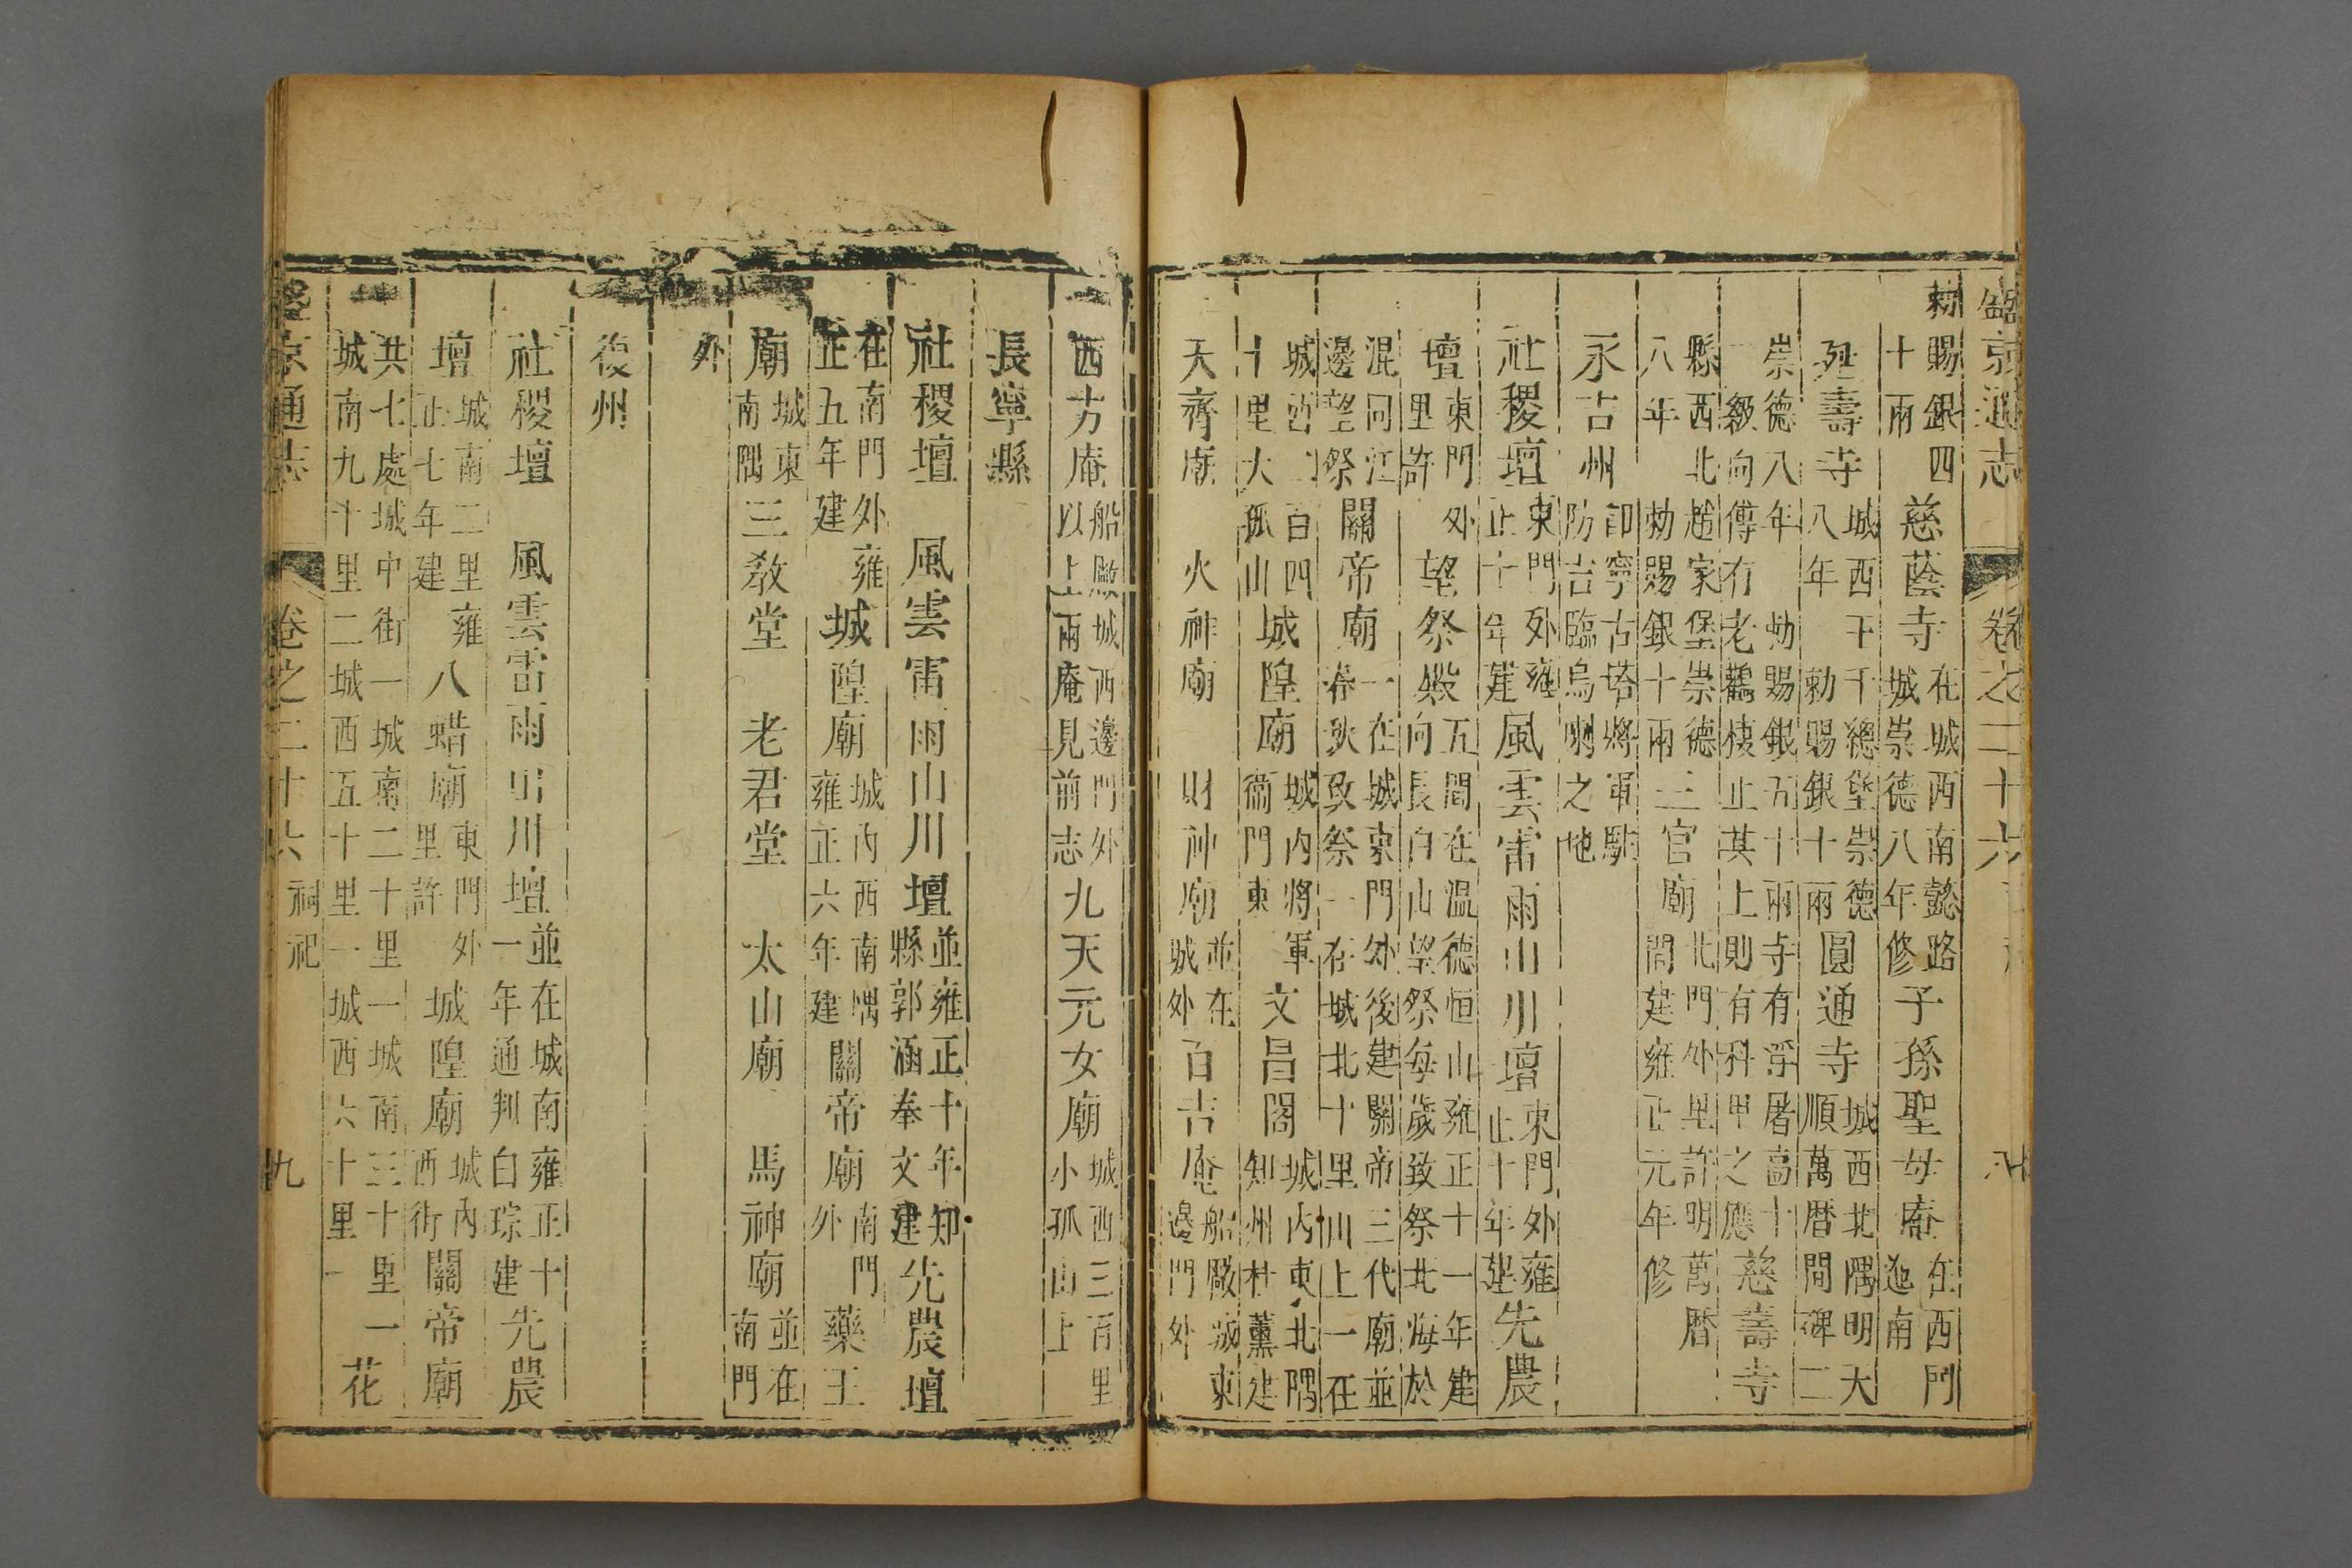 盛京通志 卷之二十六 八
勅賜銀四十兩 慈蔭寺 在城西南懿路城崇德八年修 子孫聖母庵 在西門迤南
延壽寺 城西下千總堡崇德八年勅賜銀十兩 圓通寺 城西北隅明大順萬曆間碑二
崇德八年勅賜銀五十兩寺有浮屠高十二級向傳有老鸛棲止其上則有科甲之應 慈壽寺
縣西北趙家堡崇德八年勅賜銀十兩 三官廟 北門外里許明萬曆間建雍正元年修
永吉州 卽寧古塔將軍駐防吉臨烏喇之地
社稷壇 東門外雍正十年建 風雲雷雨山川壇 東門外雍正十年建 先農
壇 東門外里許 望祭殿 五間在温德恒山雍正十一年建向長白山望祭每歲致祭北海於
混同江邊望祭 關帝廟 一在城東門外後建關帝三代廟並春秋致祭一在城北十里山上一在
城西二百四十里大孤山 城隍廟 城內將軍衙門東 文昌閣 城內東北隅知州杜薰建
天齊廟 火神廟 財神廟 並在城外 百吉庵 船廠城東邊門外
西方庵 船廠城西邊門外以上兩庵見前志 九天元女廟 城西三百里小孤山上
長寧縣
社稷壇 風雲雷雨山川壇 並雍正十年知縣郭涵奉文建 先農壇
在南門外雍正五年建 城隍廟 城內西南隅雍正六年建 關帝廟 南門外 藥王
廟 城東南隅 三敎堂 老君堂 太山廟 馬神廟 並在南門
外
復州
社稷壇 風雲雷雨山川壇 並在城南雍正十一年通判白琮建 先農
壇 城南二里雍正七年建 八蜡廟 東門外里許 城隍廟 城內西街 關帝廟
共七處城中街一城南二十里一城南三十里一城南九十里二城西五十里一城西六十里一 花
盛京通志 卷之二十六 祠祀 九